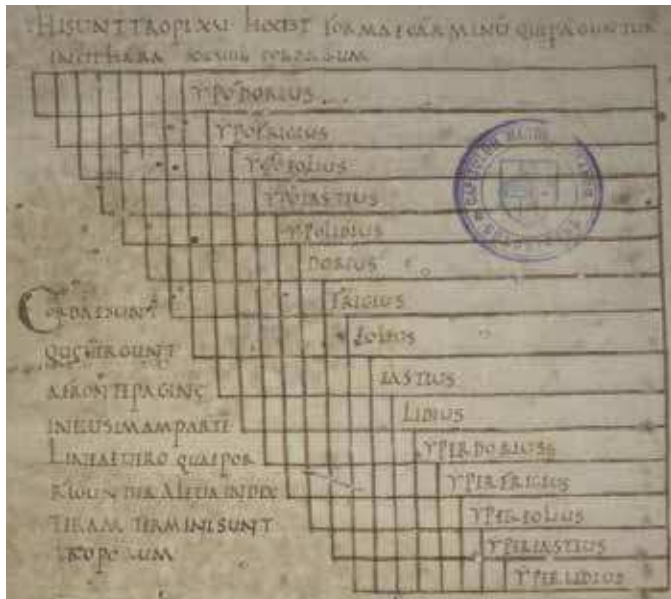 HI SUNT TROPI XV HOC EST FORMAE CARMINŪ QUI PAGUNTUR
IN CITHARA
YPODORIUS
YPOFRIGIUS
YPOEOLIUS
YPOIASTIUS
YPOLIDIUS
DORIUS
FRIGIUS
EOLIUS
IASTIUS
LIDIUS
YPERDORIUS
YPERFRIGIUS
YPEREOLIUS
YPERIASTIUS
YPERLIDIUS
CORDAE SUNT
A FRONTE PAGINĘ
IN EUSIMAM PARTĒ
LINEAE UERO QUAE POR
TERAM TERMINI SUNT
TROPORUM